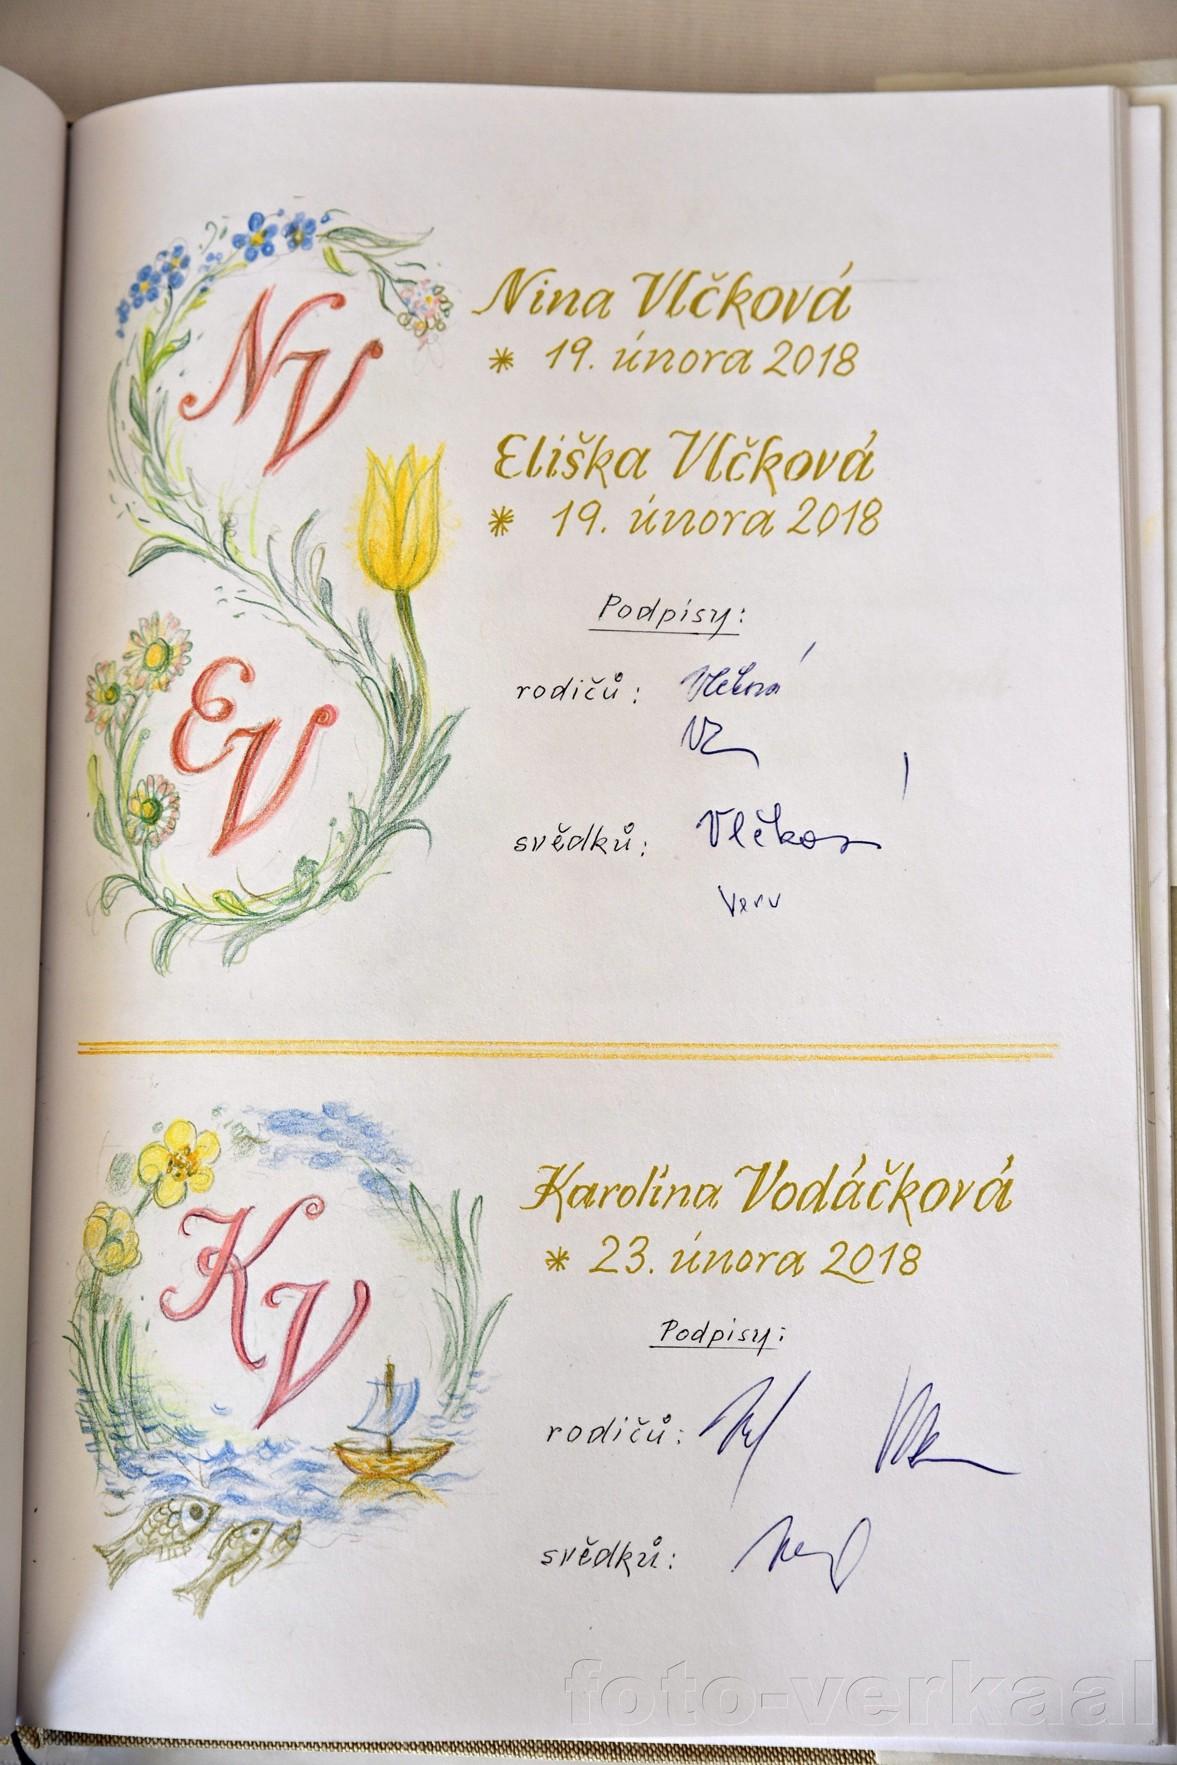 NV
Nina Vlčková
* 19. února 2018
Eliška Vlčková
* 19. února 2018
Podpisy:
rodičů:
EV
svědků: Vlčkov
Karolína Vodáčková
* 23. února 2018
KV
Podpisy:
rodičů:
svědků:
foto-verkaal